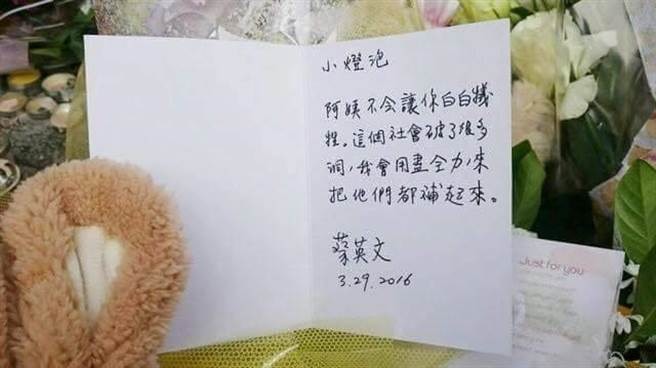 小燈泡
阿姨不会讓你白白犧
牲。這個社會破了很多
洞,我會用盡全力,來
把他們都補起來。
蔡英文
3.29.2016
Just for you